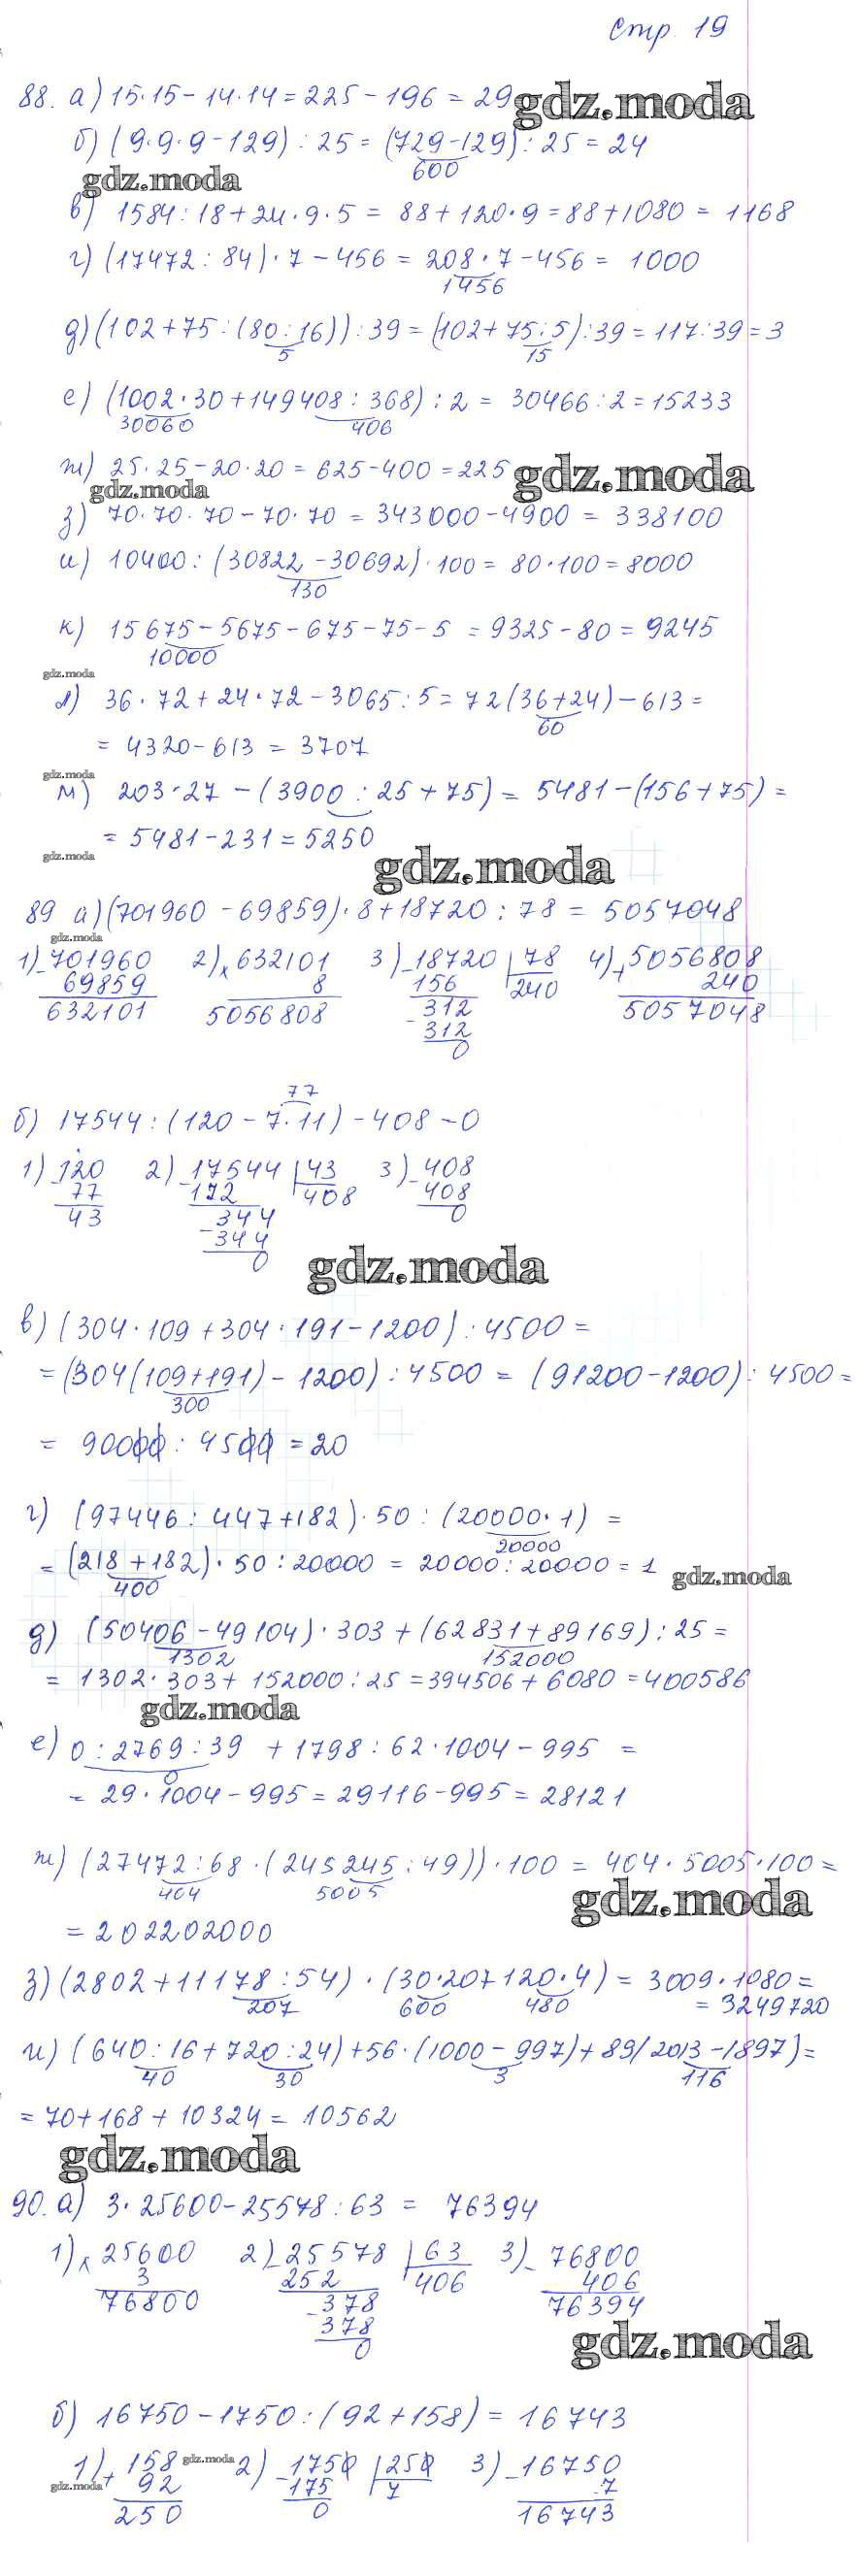 Стр. 19
88. а) 15·15-14·14=225-196=29
gdz.moda
б) (9·9·9-129):25=(729-129):25=24
600
gdz.moda
в) 1584:18+24·9·5=88+120·9=88+1080=1168
г) (17472:84)·7-456=208·7-456=1000
1456
д) (102+75:(80:16)):39=(102+75:5):39=117:39=3
5 15
е) (1002·30+149408:368):2=30466:2=15233
30060 406
ж) 25·25-20·20=625-400=225
gdz.moda
gdz.moda
з) 70·70·70-70·70=343000-4900=338100
и) 10400:(30822-30692)·100=80·100=8000
130
к) 15675-5675-675-75-5=9325-80=9245
10000
gdz.moda
л) 36·72+24·72-3065:5=72(36+24)-613=
60
=4320-613=3707
gdz.moda
м) 203·27-(3900:25+75)=5481-(156+75)=
=5481-231=5250
gdz.moda
gdz.moda
89 а) (701960-69859)·8+18720:78=5057048
gdz.moda
1) - 701960 2) x 632101 3) - 18720 78 4) + 5056808
69859 8 156 240 240
632101 5056808 - 312 5057048
312
0
77
б) 17544:(120-7·11)-408-0
1) - 120 2) - 17544 43 3) - 408
77 172 408 408
43 - 344 0
344
0
gdz.moda
в) (304·109+304·191-1200):4500=
=(304(109+191)-1200):4500=(91200-1200):4500=
300
=90000:4500=20
г) (97446:447+182)·50:(20000·1)=
20000
=(218+182)·50:20000=20000:20000=1
gdz.moda
400
д) (50406-49104)·303+(62831+89169):25=
1302 152000
=1302·303+152000:25=394506+6080=400586
gdz.moda
е) 0:2769:39+1798:62·1004-995=
0
=29·1004-995=29116-995=28121
ж) (27472:68·(245245:49))·100=404·5005·100=
404 5005
gdz.moda
=202202000
з) (2802+11178:54)·(30·20+120·4)=3009·1080=
207 600 480 =3249720
и) (640:16+720:24)+56·(1000-997)+89(2013-1897)=
40 30 3 116
=70+168+10324=10562
gdz.moda
90. а) 3·25600-25578:63=76394
1) x 25600 2) - 25578 63 3) - 76800
3 252 406 406
76800 - 378 76394
378
0
gdz.moda
б) 16750-1750:(92+158)=16743
1) + 158 gdz.moda 2) - 1750 250 3) - 16750
gdz.moda 92 175 7 7
250 0 16743